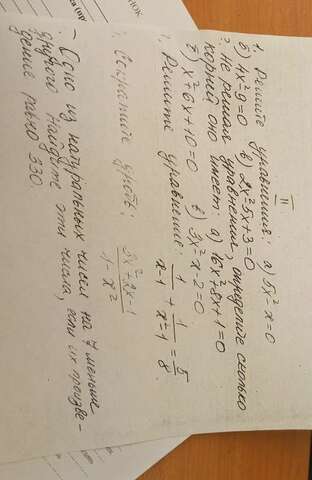 II
1. Решите уравнения: а) 5x²-x=0
б) 4x²-9=0 в) 2x²-5x+3=0
? Не решая уравнения, определите сколько
корний оно имеет: а) 16x²+8x+1=0
б) x²+6x+10=0 в) 3x²-x-2=0
Решите уравнение: 1/(x-1) + 1/(x²-1) = 5/8
Сократите дробь: (3x²+2x-1)/(1-x²)
- Одно из натуральных чисел на 7 меньше
другого. Найдите эти числа, если их произве-
дение равно 330.